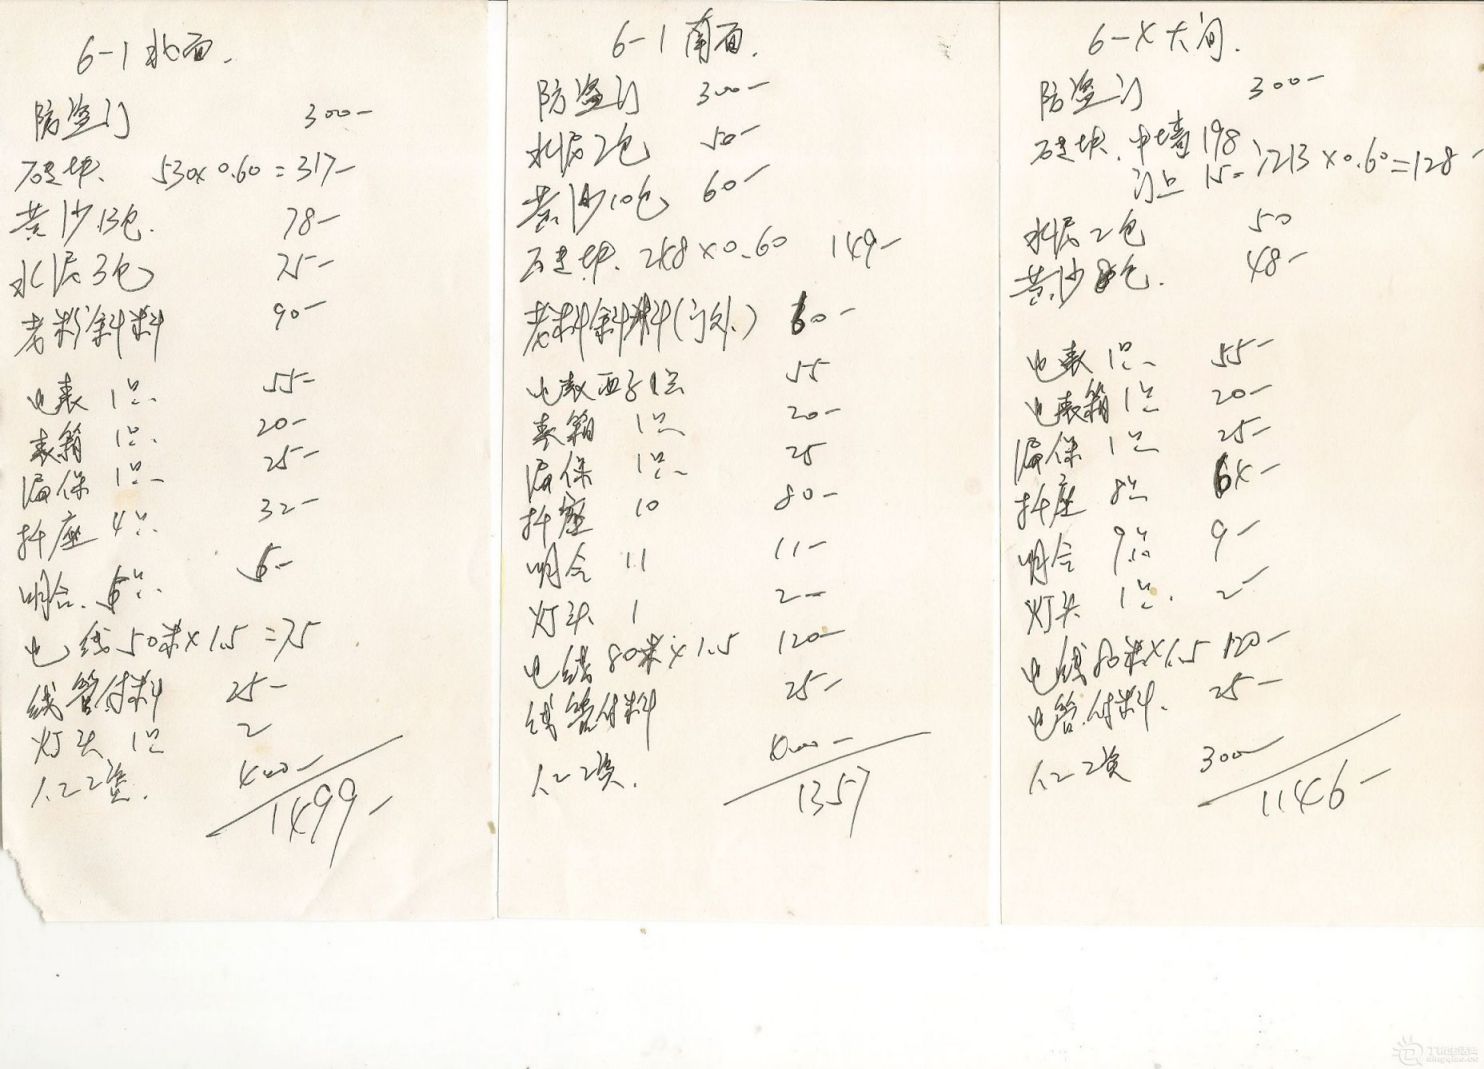 6-1北面.
防盗门 300-
砖块. 530×0.60=317-
黄沙13包. 78-
水泥3包 75-
老粉涂料 90-
电表 1只. 55-
表箱 1只. 20-
漏保 1只- 25-
插座 4只. 32-
明合. 6只. 6-
电线50米×1.5=75
线管付料 25-
灯头 1只 2
人工工资. 400-
1499-
6-1南面.
防盗门 300-
水泥2包 50-
黄沙10包 60-
砖块. 248×0.60 149-
老粉涂料(门外.) 60-
电表 1只 55
表箱 1只 20-
漏保 1只- 25
插座 10 80-
明合 11 11-
灯头 1 2-
电线80米×1.5 120-
线管付料 25-
人工工资. 400-
1357
6-4大间.
防盗门 300-
砖块. 中墙198
门上 15- 213×0.60=128-
水泥2包 50
黄沙8包. 48-
电表 1只 55-
电表箱 1只 20-
漏保 1只 25-
插座 8只 64-
明合 9只 9-
灯头 1只. 2-
电线80米×1.5 120-
电管付料. 25-
人工工资 300-
1146-